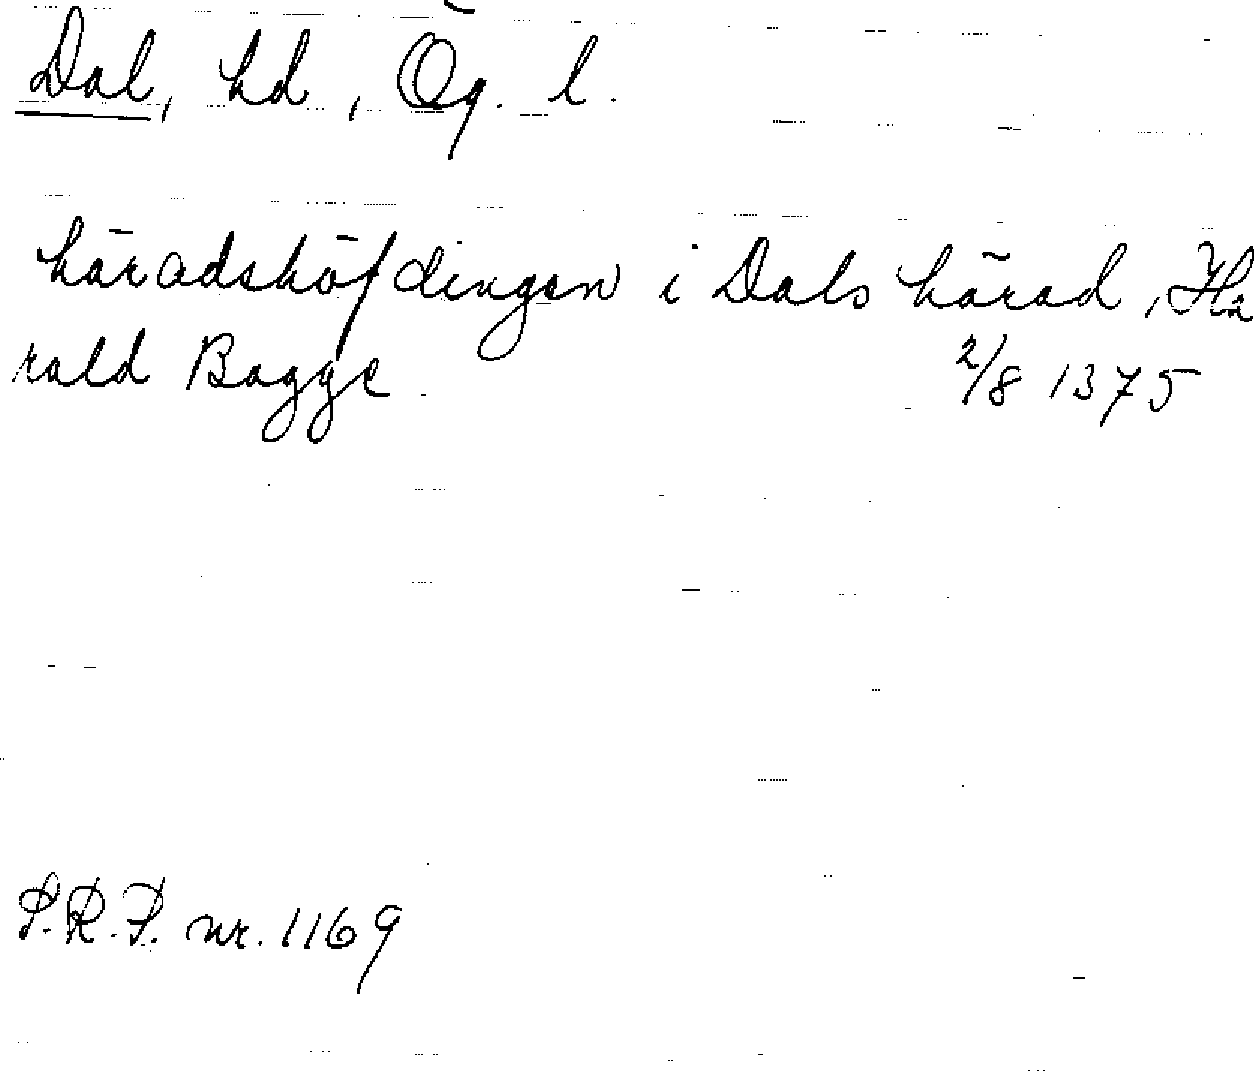 Dal, hd, Ög. l.
häradshöfdingen i Dals härad, Ha
rald Bagge 2/8 1375
S.R.P. nr. 1169